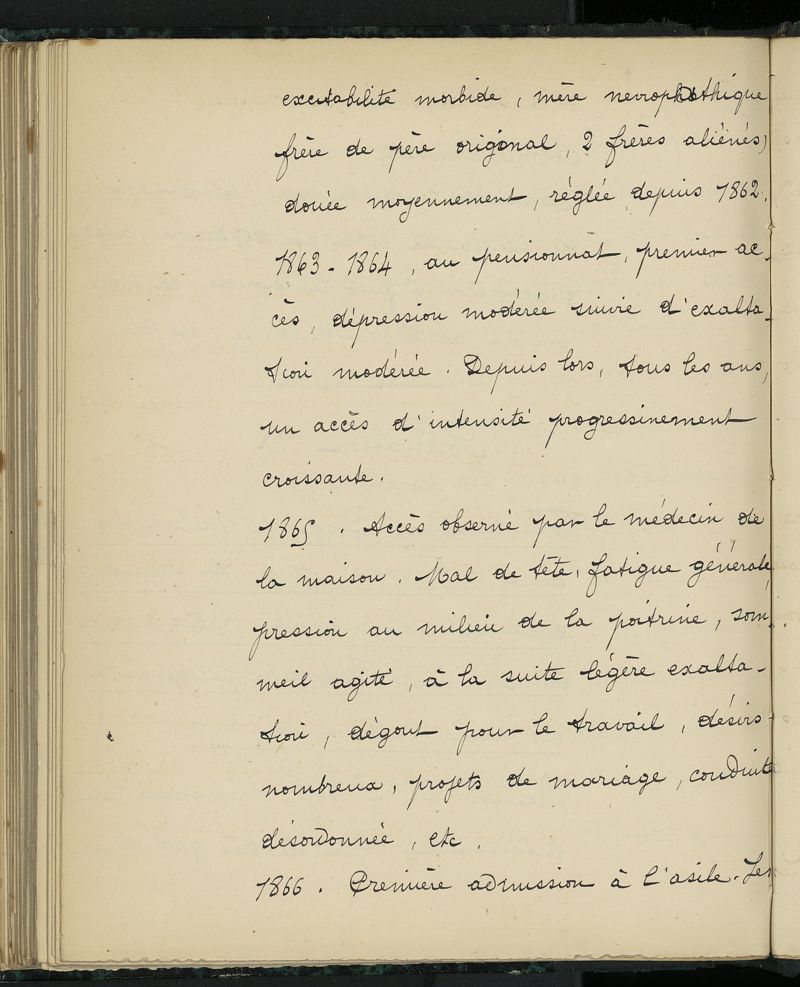 excitabilité morbide, mère nevrophathique
frère de père original, 2 frères aliénés)
douée moyennement, réglée depuis 1862.
1863-1864, au pensionnat, premier ac-
cès, dépression modérée suivie d'exalta-
tion modérée. Depuis lors, tous les ans,
un accès d'intensité progressivement
croissante.
1865. Accès observé par le médecin de
la maison. Mal de tête, fatigue générale,
pression au milieu de la poitrine, som-
meil agité, à la suite légère exalta-
tion, dégout pour le travail, désirs
nombreux, projets de mariage, conduite
désordonnée, etc.
1866. Première admission à l'asile.